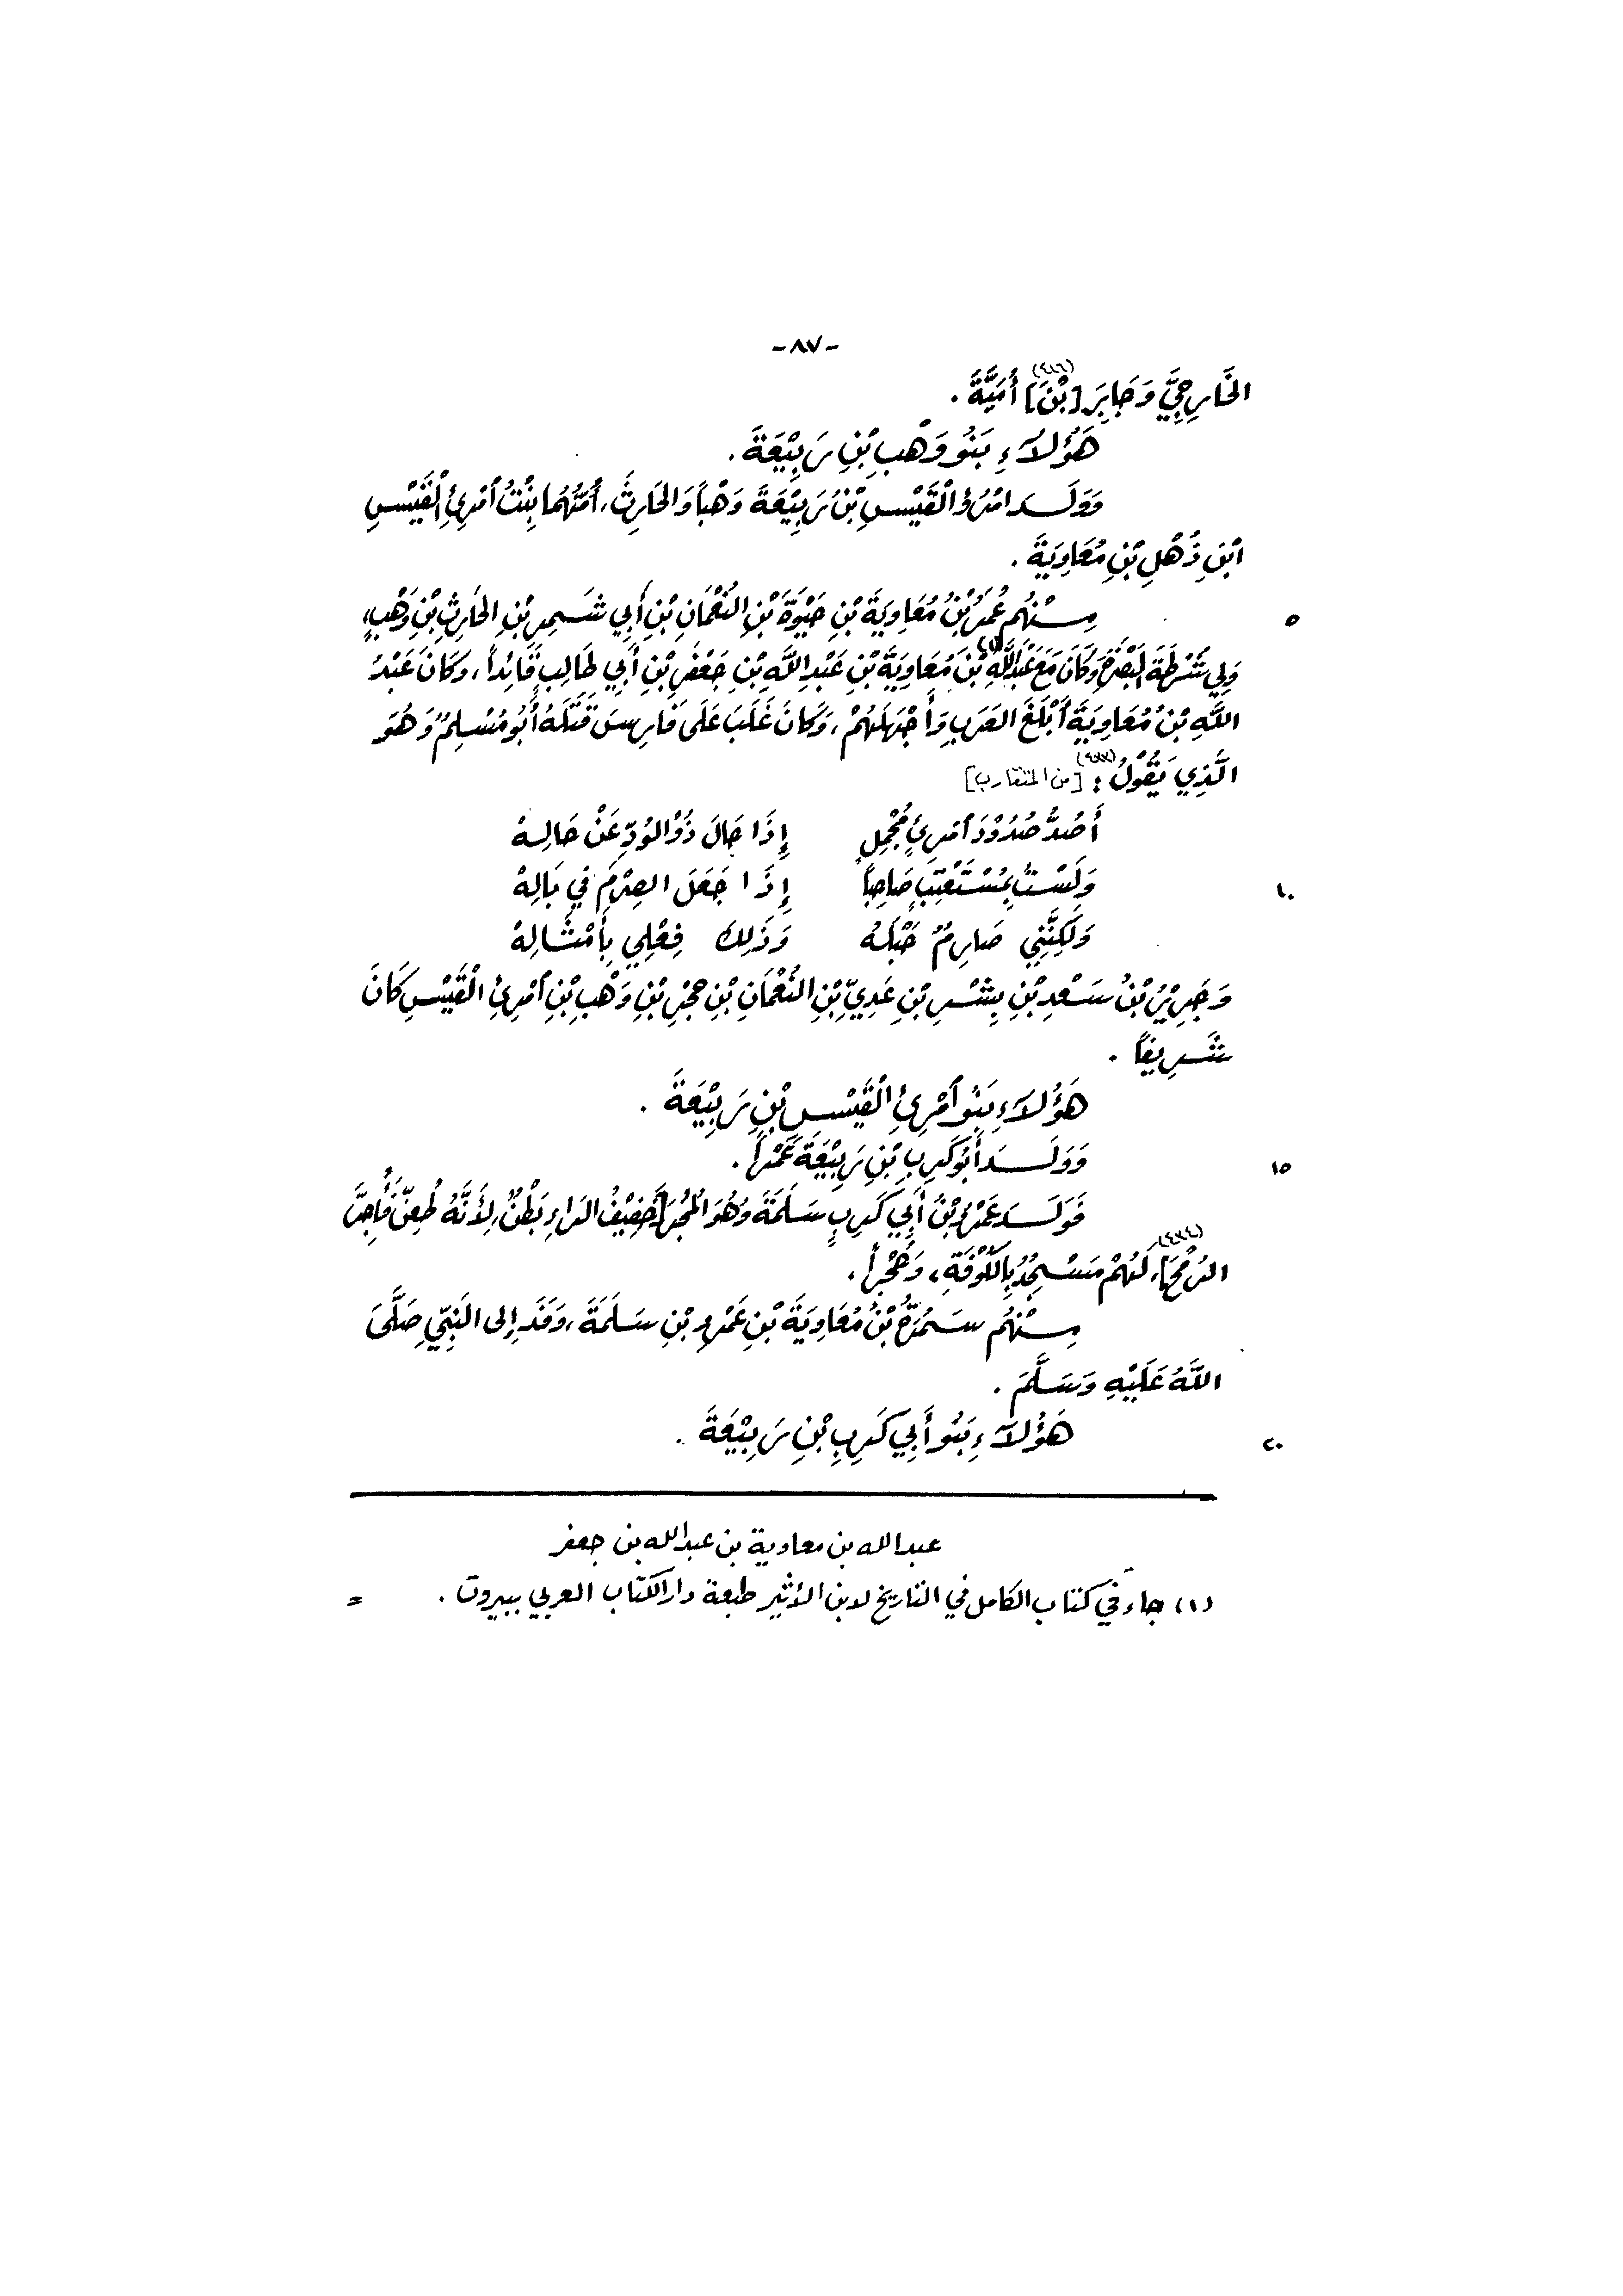 -٨٧-
الخَارِجِيَّ وَجَابِرَ [بْنَ] (٤٣٢) أُمَيَّةَ .
هَؤُلاَءِ بَنُو وَهْبِ بْنِ رَبِيْعَةَ .
وَوَلَدَ امْرُؤُ الْقَيْسِ بْنُ رَبِيْعَةَ وَهْباً وَالحَارِثَ، أُمُّهُمَا بِنْتُ امْرِئِ الْقَيْسِ
ابْنِ ذُهْلِ بْنِ مُعَاوِيَةَ .
مِنْهُم عُمَرُ بْنُ مُعَاوِيَةَ بْنِ حَيْوَةَ بْنِ النُّعْمَانِ بْنِ أَبِي شَمِرِ بْنِ الحَارِثِ بْنِ وَهْبٍ، ٥
وَلِي شُرْطَةَ البَصْرَةِ وَكَانَ مَعَ عَبْدِ اللَّهِ (١) بْنِ مُعَاوِيَةَ بْنِ عَبْدِ اللَّهِ بْنِ جَعْفَرِ بْنِ أَبِي طَالِبٍ قَائِداً، وَكَانَ عَبْدُ
اللَّهِ بْنُ مُعَاوِيَةَ أَبْلَغَ العَرَبِ وَأَجْهَلَهُمْ، وَكَانَ غَلَبَ عَلَى فَارِسَ قَتَلَهُ أَبُو مُسْلِمٍ وَهُوَ
الَّذِي يَقُولُ (٤٣٣): [من المتقارب]
أَصُدُّ صُدُوْدَ امْرِئٍ مُجْمِلٍ إِذَا حَالَ ذُوْ الوُدِّ عَنْ حَالِهْ
وَلَسْتُ بِمُسْتَعْتِبٍ صَاحِباً إِذَا جَعَلَ الصِرْمَ فِي بَالِهْ ١٠
وَلَكِنَّنِي صَارِمٌ حَبْلَهُ وَذَلِكَ فِعْلِي بِأَمْثَالِهْ
وَجَرِيْرُ بْنُ سَعْدِ بْنِ بِشْرِ بْنِ عَدِيِّ بْنِ النُّعْمَانِ بْنِ حُجْرِ بْنِ وَهْبِ بْنِ امْرِئِ الْقَيْسِ كَانَ
شَرِيفاً .
هَؤُلاَءِ بَنُو امْرِئِ الْقَيْسِ بْنِ رَبِيْعَةَ .
وَوَلَدَ أَبُو كَرِبِ بْنِ رَبِيْعَةَ عَمْراً . ١٥
فَوَلَدَ عَمْرُو بْنُ أَبِي كَرِبٍ سَلَمَةَ وَهُوَ المُجَرُّ [خَفِيْفُ الرَاءِ بَطْنٌ، لِأَنَّهُ طُعِنَ فَأُجِرَّ
الرُمْحَ] (٤٣٤)، لَهُمْ مَسْجِدٌ بِالكُوْفَةِ، وَحُجْراً .
مِنْهُم سَمُرَةُ بْنُ مُعَاوِيَةَ بْنِ عَمْرِو بْنِ سَلَمَةَ، وَفَدَ إِلى النَبِيِّ صَلَّى
اللَّهُ عَلَيْهِ وَسَلَّمَ .
هَؤُلاَءِ بَنُو أَبِي كَرِبِ بْنِ رَبِيْعَةَ . ٢٠
عبد الله بن معاوية بن عبد الله بن جعفر
(١) جاء في كتاب الكامل في التاريخ لابن الأثير طبعة دار الكتاب العربي ببيروت . =